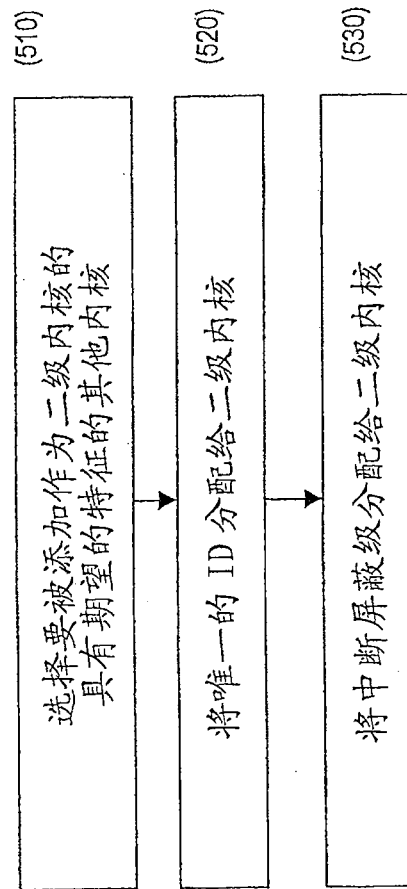 选择要被添加作为二级内核的
具有期望的特征的其他内核
(510)
将唯一的 ID 分配给二级内核
(520)
将中断屏蔽级分配给二级内核
(530)